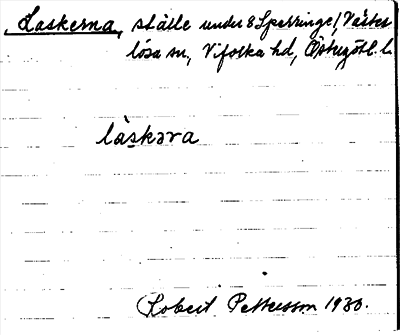 Laskerna, ställe under 8 Sperringe, Väder-
lösa sn, Vifolka hd, Östergötl. l.
làskəra
Robert Pettersson 1930.